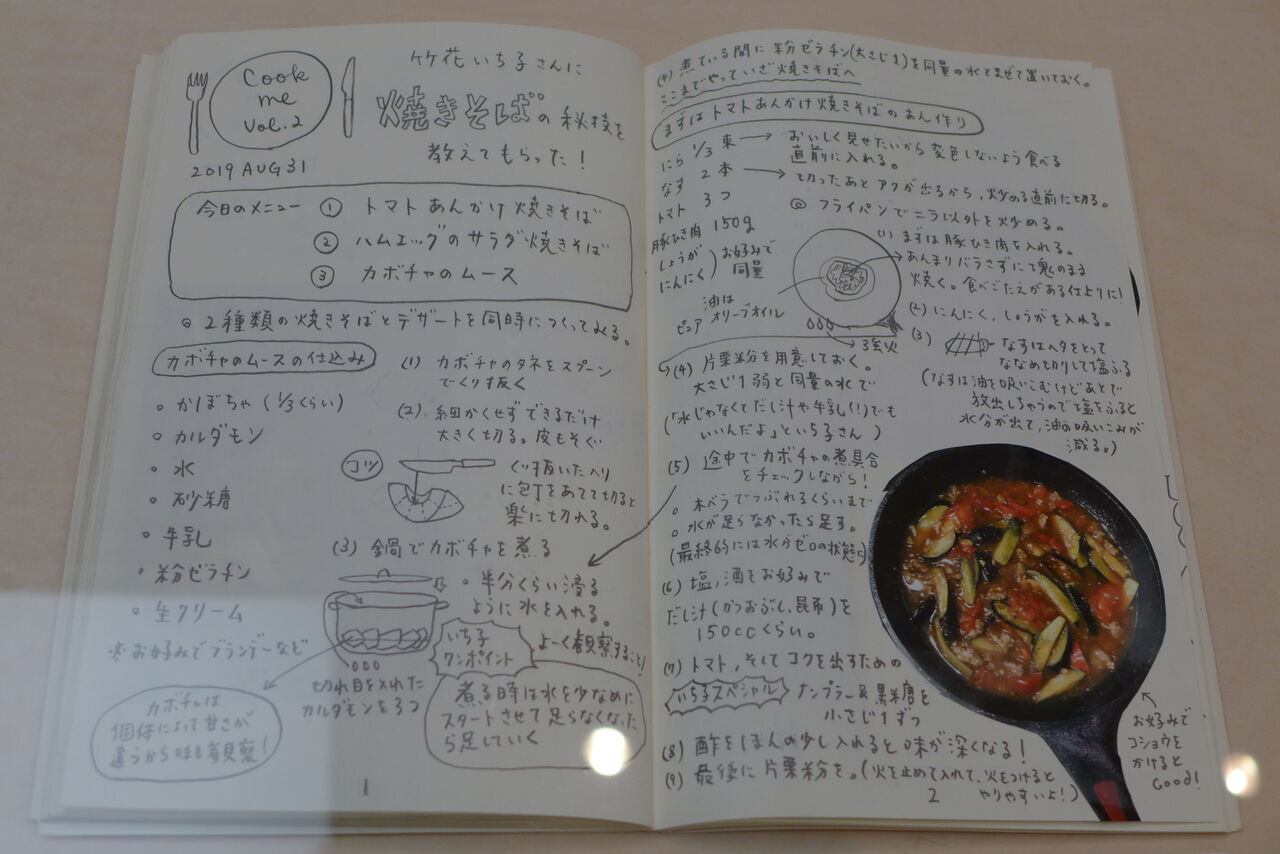 Cook
me
Vol.2
竹花いち子さんに
焼きそばの秘技を
教えてもらった!
2019 AUG 31
今日のメニュー ① トマトあんかけ焼きそば
② ハムエッグのサラダ焼きそば
③ カボチャのムース
◎ 2種類の焼きそばとデザートを同時につくってみる。
カボチャのムースの仕込み
。かぼちゃ (1/3くらい)
。カルダモン
。水
。砂糖
。牛乳
。粉ゼラチン
。生クリーム
※お好みでブランデーなど
カボチャは
個体によって甘さが
違うから味を観察!
(1) カボチャのタネをスプーン
でくり抜く
(2) 細かくせずできるだけ
大きく切る。皮もそぐ
コツ
くり抜いたヘリ
に包丁をあてて切ると
楽に切れる。
(3) 鍋でカボチャを煮る
。半分くらい浸る
ように水を入れる。
よーく観察すること!
切れ目を入れた
カルダモンを3つ
いち子
ワンポイント
煮る時は水を少なめに
スタートさせて足らなくなった
ら足していく
1
(4) 煮ている間に粉ゼラチン(大さじ1)を同量の水とまぜて置いておく。
ここまでやっていざ焼きそばへ
まずはトマトあんかけ焼きそばのあん作り
にら 1/3束 → おいしく見せたいから変色しないよう食べる
直前に入れる。
なす 2本 → 切ったあとアクが出るから、炒める直前に切る。
トマト 3つ
豚ひき肉 150g
しょうが
にんにく) お好みで
同量
油は
ピュアオリーブオイル
◎ フライパンでニラ以外を炒める。
(1) まずは豚ひき肉を入れる。
あんまりバラさずにて塊のまま
焼く。食べごたえがある仕上りに!
3強火
(2) にんにく、しょうがを入れる。
(3) なすはヘタをとって
ななめ切りして塩ふる
(なすは油を吸いこむけどあとで
放出しちゃうので塩をふると
水分が出て、油の吸いこみが
減る。)
(4) 片栗粉を用意しておく。
大さじ1弱と同量の水で
(「水じゃなくてだし汁や牛乳(!)でも
いいんだよ」といち子さん)
(5) 途中でカボチャの煮具合
をチェックしながら!
。木ベラでつぶれるくらいまで
。水が足らなかったら足す。
(最終的には水分ゼロの状態に)
(6) 塩、酒をお好みで
だし汁(かつおぶし、昆布)を
150ccくらい。
(7) トマト、そしてコクを出すための
いち子スペシャル ナンプラー&黒糖を
小さじ1ずつ
(8) 酢をほんの少し入れると味が深くなる!
(9) 最後に片栗粉を。(火を止めて入れて、火をつけると
やりやすいよ!)
お好みで
コショウを
かけると
Good!
2